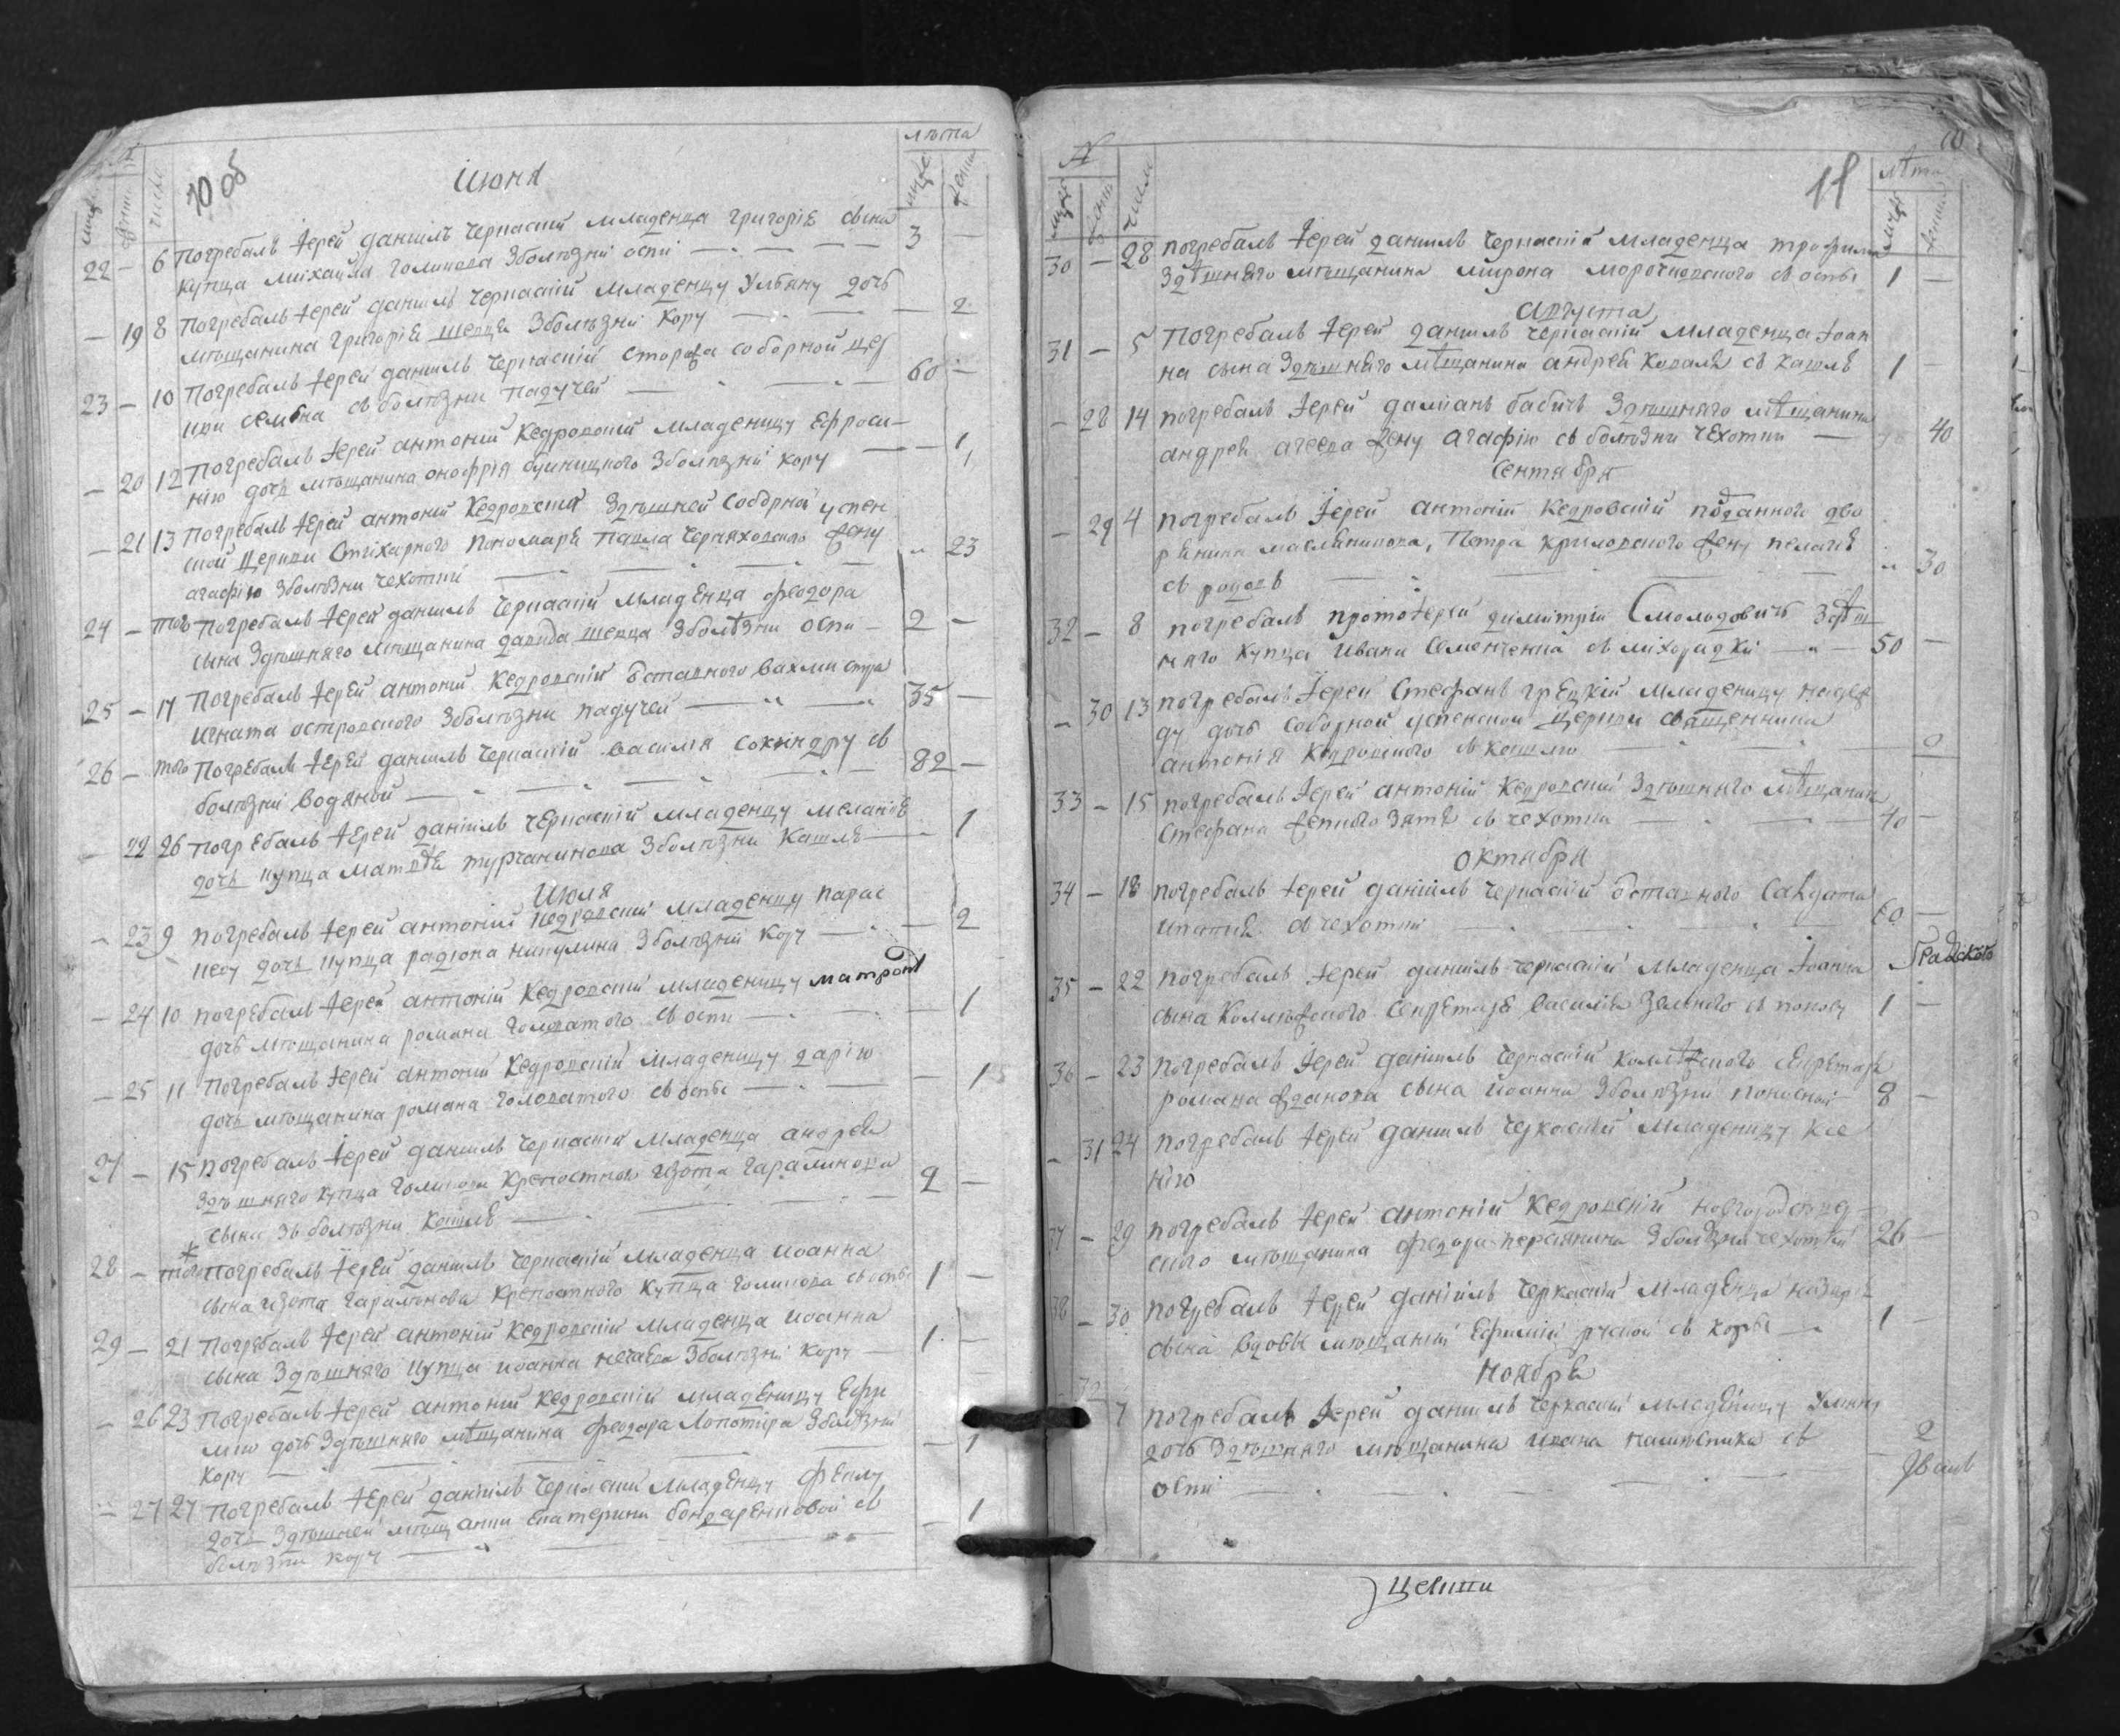 10 об
Июня
лѣта
22 – 6 Погребалъ Іерей Даніилъ Черкаскій младенца Григорія сына 3 –
купца Михайла Голикова зболѣзни оспи
– 19 8 Погребалъ Іерей Даніилъ Черкаскій младенцу Ульяну дочь – 2
мѣщанина Григорія шевця зболѣзни кору
23 – 10 Погребалъ Іерей Даніилъ Черкаскій сторожа соборной цер 60 –
кви семена съ болѣзни падучей
– 20 12 Погребалъ Іерей Антоній Кедровскій младеницу Ефроси– – 1
нію дочь мѣщанина Онофрія зболѣзни кору
– 21 13 Погребалъ Іерей Антоній Кедровскій здѣшней соборной успен
ской церкви стихарного пономаря Павла Черняховского жену – 23
Агафію зболѣзни чехотки
24 – того Погребалъ Іерей Даніилъ Черкаскій младенца Феодора
сына здѣшняго мѣщанина давида шевца зболѣзни оспи – 2 –
25 – 17 Погребалъ Іерей Антоній Кедровскій отставного вахмистра
Игната островского зболѣзни падучей 35 –
26 – того Погребалъ Іерей Даніилъ Черкаскій василія съ 82 –
болѣзни водяной
– 22 26 Погребалъ Іерей Даніилъ Черкаскій младенцу Меланію – 1
дочь купца Матвѣя турчанинова зболѣзни кашля
Июля
– 23 9 Погребалъ Іерей Антоній Кедровскій младенцу парас
кеву дочь купца радіона никулина зболѣзни кору – 2
– 24 10 Погребалъ Іерей Антоній Кедровскій младеницу матрону
дочь мѣщанина романа головатого съ оспи – 1
– 25 11 Погребалъ Іерей Антоній Кедровскій младеницу дарію
дочь мѣщанина романа головатого съ оспы – 1
27 – 15 Погребалъ Іерей Даніилъ Черкаскій младенца андрея
здѣшняго купца голикова крепостного изота гаралинова 2 –
сына зъ болѣзни кашля
28 – того Погребалъ Іерей Даніилъ Черкаскій младенца иоанна
сына изота крепостного купца голикова съ оспы 1 –
29 – 21 Погребалъ Іерей Антоній Кедровскій младенца иоанна
сына здѣшняго купца иоанна нечаева зболѣзни кору – 1 –
– 26 23 Погребалъ Іерей Антоній Кедровскій младеницу Ефи
мію дочь здѣшняго мѣщанина феодора зболѣзни
кору – 1
– 27 27 Погребалъ Іерей Даніилъ Черкаскій младенцу феклу
дочь здѣшней мѣщанки екатерини бондаренковой съ – 1
болѣзни кору
11
лѣта
30 – 28 Погребалъ Іерей Даніилъ Черкаскій младенца трофима
здѣшняго мѣщанина мирона съ оспы 1 –
Августа
31 – 5 Погребалъ Іерей Даніилъ Черкаскій младенца Іоан
на сына здѣшняго мѣщанина андрея коваля съ кашля 1 –
– 28 14 Погребалъ Іерей Даміанъ бабичъ здѣшняго мѣщанина
андрея агеева жену агафію съ болѣзни чехотки – 40
Сентября
– 29 4 Погребалъ Іерей Антоній Кедровскій подданного дво
рянина масляникова, Петра криловского жену пелагію
съ родовъ – 30
32 – 8 погребалъ протоіерей димитрій Смольдовичъ здѣш
няго купца ивана семенченка съ лихорадки 50 –
– 30 13 Погребалъ Іерей Стефанъ грецкій младеницу надеж
ду дочь соборной успенской церкви священника
антонія кедровского съ кашлю
33 – 15 Погребалъ Іерей Антоній Кедровскій здѣшняго мѣщанина
Стефана зятя съ чехотки 40 –
Октября
34 – 18 Погребалъ Іерей Даніилъ Черкаскій отставного салдата
игнатія съ чехотки 60 –
35 – 22 Погребалъ Іерей Даніилъ Черкаскій младенца Іоанна
сына коллѣжского секретаря василія зеленого съ поносу 1 –
36 – 23 Погребалъ Іерей Даніилъ Черкаскій коллѣжского секретаря
романа жданова сына иоанна зболѣзни поносной 8 –
– 31 24 Погребалъ Іерей Даніилъ Черкаскій младеницу ксе
нію
37 – 29 Погребалъ Іерей Антоній Кедровскій
ского мѣщанина федора зболѣзни чехотки 26 –
38 – 30 Погребалъ Іерей Даніилъ Черкаскій младенца назарія
сына вдовы мѣщанки Ефиміи съ кору 1 –
Ноября
7 Погребалъ Іерей Даніилъ Черкаскій младеницу
дочь здѣшняго мѣщанина ивана съ 2
оспи